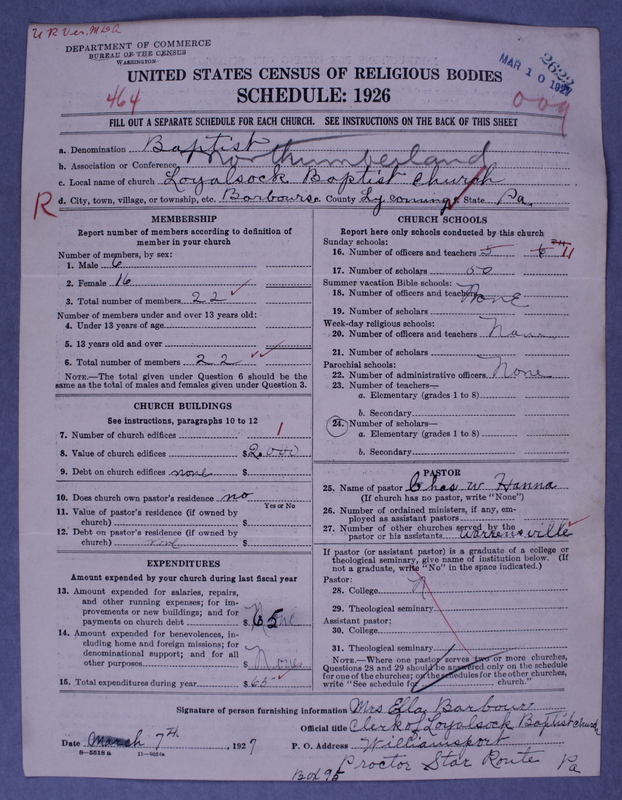 U R Ver. MLA
DEPARTMENT OF COMMERCE
BUREAU OF THE CENSUS
WASHINGTON
2622
MAR 10 1927
UNITED STATES CENSUS OF RELIGIOUS BODIES
SCHEDULE: 1926
464
009
FILL OUT A SEPARATE SCHEDULE FOR EACH CHURCH. SEE INSTRUCTIONS ON THE BACK OF THIS SHEET
a. Denomination Baptist
b. Association or Conference Northumberland
c. Local name of church Loyalsock Baptist Church
R
d. City, town, village, or township, etc. Barbours County Lycoming State Pa.
MEMBERSHIP
Report number of members according to definition of
member in your church
Number of members, by sex:
1. Male 6
2. Female 16
3. Total number of members 22
Number of members under and over 13 years old:
4. Under 13 years of age
5. 13 years old and over
6. Total number of members 22
NOTE.—The total given under Question 6 should be the
same as the total of males and females given under Question 3.
CHURCH BUILDINGS
See instructions, paragraphs 10 to 12
7. Number of church edifices 1
8. Value of church edifices $2,000
9. Debt on church edifices none $
10. Does church own pastor's residence no
Yes or No
11. Value of pastor's residence (if owned by
church) $
12. Debt on pastor's residence (if owned by
church) $
EXPENDITURES
Amount expended by your church during last fiscal year
13. Amount expended for salaries, repairs,
and other running expenses; for im-
provements or new buildings; and for
payments on church debt $ 65
14. Amount expended for benevolences, in-
cluding home and foreign missions; for
denominational support; and for all
other purposes $ None
15. Total expenditures during year $ 65
CHURCH SCHOOLS
Report here only schools conducted by this church
Sunday schools:
16. Number of officers and teachers 5 6 11
17. Number of scholars 50
Summer vacation Bible schools:
18. Number of officers and teachers None
19. Number of scholars
Week-day religious schools:
20. Number of officers and teachers None
21. Number of scholars
Parochial schools:
22. Number of administrative officers None
23. Number of teachers—
a. Elementary (grades 1 to 8)
b. Secondary
24. Number of scholars—
a. Elementary (grades 1 to 8)
b. Secondary
PASTOR
25. Name of pastor Chas W. Hanna
(If church has no pastor, write "None")
26. Number of ordained ministers, if any, em-
ployed as assistant pastors
27. Number of other churches served by the
pastor or his assistants Warrensville
If pastor (or assistant pastor) is a graduate of a college or
theological seminary, give name of institution below. (If
not a graduate, write "No" in the space indicated.)
Pastor:
28. College
29. Theological seminary
Assistant pastor:
30. College
31. Theological seminary
NOTE.—Where one pastor serves two or more churches,
Questions 28 and 29 should be answered only on the schedule
for one of the churches; on the schedules for the other churches,
write "See schedule for church."
Signature of person furnishing information Mrs Ella Barbour
Official title Clerk of Loyalsock Baptist church
Date March 7th, 1927 P. O. Address Williamsport
8—5518a 11—9654a
Proctor Star Route Pa
Box 95